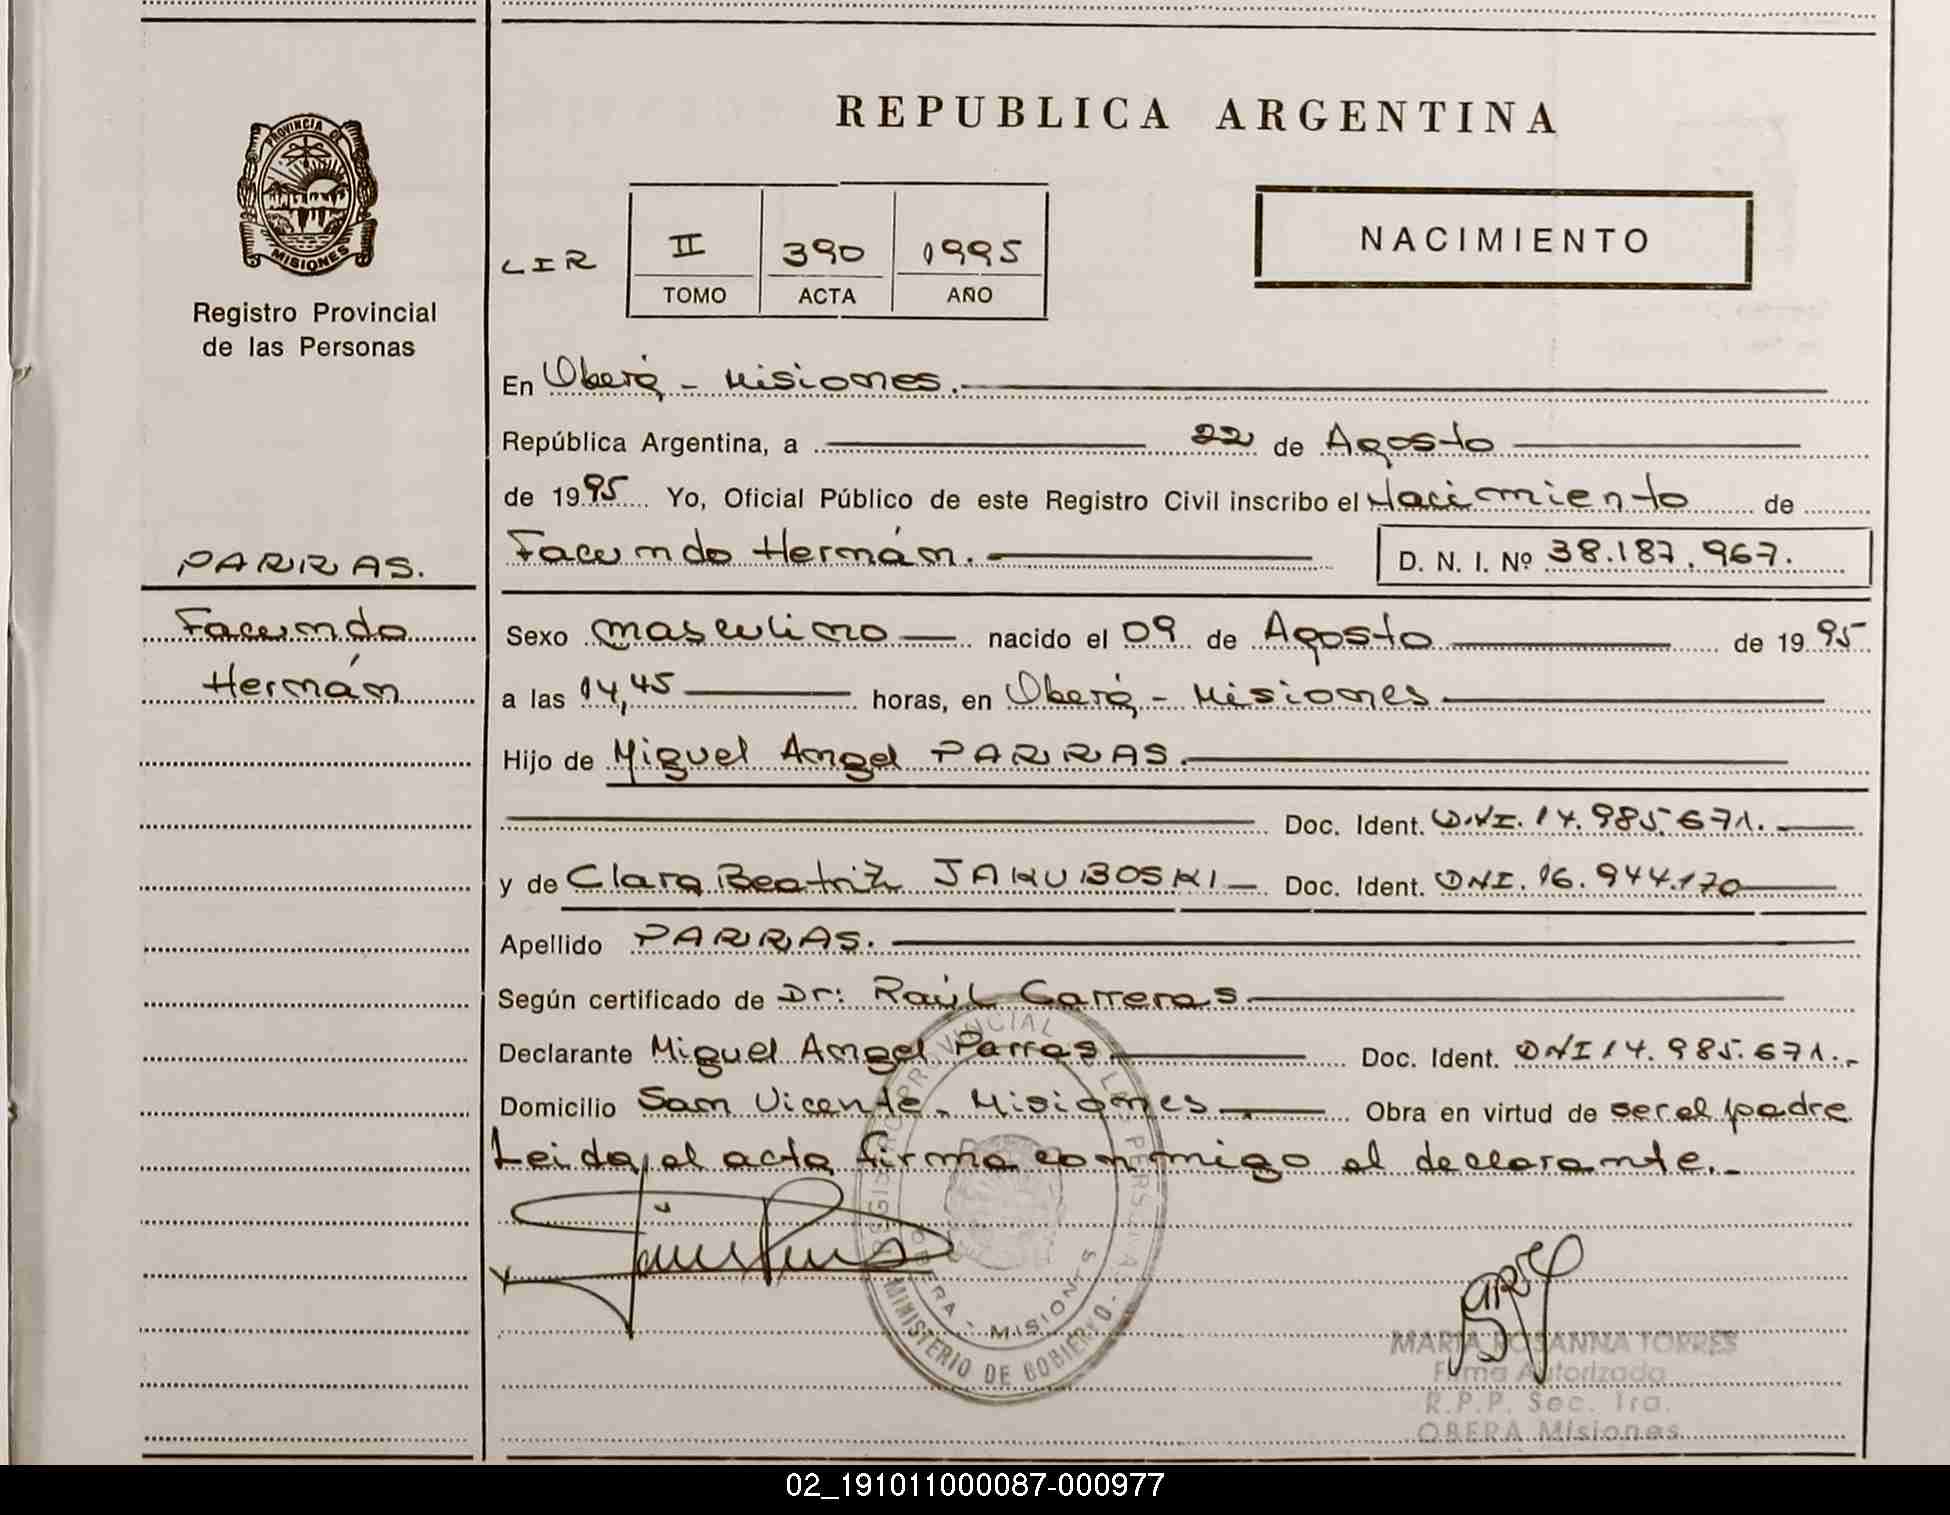 REPUBLICA ARGENTINA
PROVINCIA DE
MISIONES
Registro Provincial
de las Personas
LIR
II 390 1995
TOMO ACTA AÑO
NACIMIENTO
En Oberá - Misiones.
República Argentina, a 22 de Agosto
de 1995 Yo, Oficial Público de este Registro Civil inscribo el Nacimiento de
Facundo Hernán. D. N. I. Nº 38.187.967.
PARRAS.
Facundo
Hernán
Sexo masculino nacido el 09 de Agosto de 1995
a las 14,45 horas, en Oberá - Misiones
Hijo de Miguel Angel PARRAS.
Doc. Ident. DNI. 14.985.671.
y de Clara Beatriz JAKUBOSKI Doc. Ident. DNI. 16.944.170
Apellido PARRAS.
Según certificado de Dr: Raúl Carreras
Declarante Miguel Angel Parras Doc. Ident. DNI 14.985.671.-
Domicilio San Vicente. Misiones Obra en virtud de ser el padre
Leida el acta firma conmigo el declarante.-
REGISTRO PROVINCIAL DE LAS PERSONAS
OBERA - MISIONES
MINISTERIO DE GOBIERNO
MARIA ROSANNA TORRES
Firma Autorizada
R.P.P. Sec. 1ra.
OBERA Misiones
02_191011000087-000977